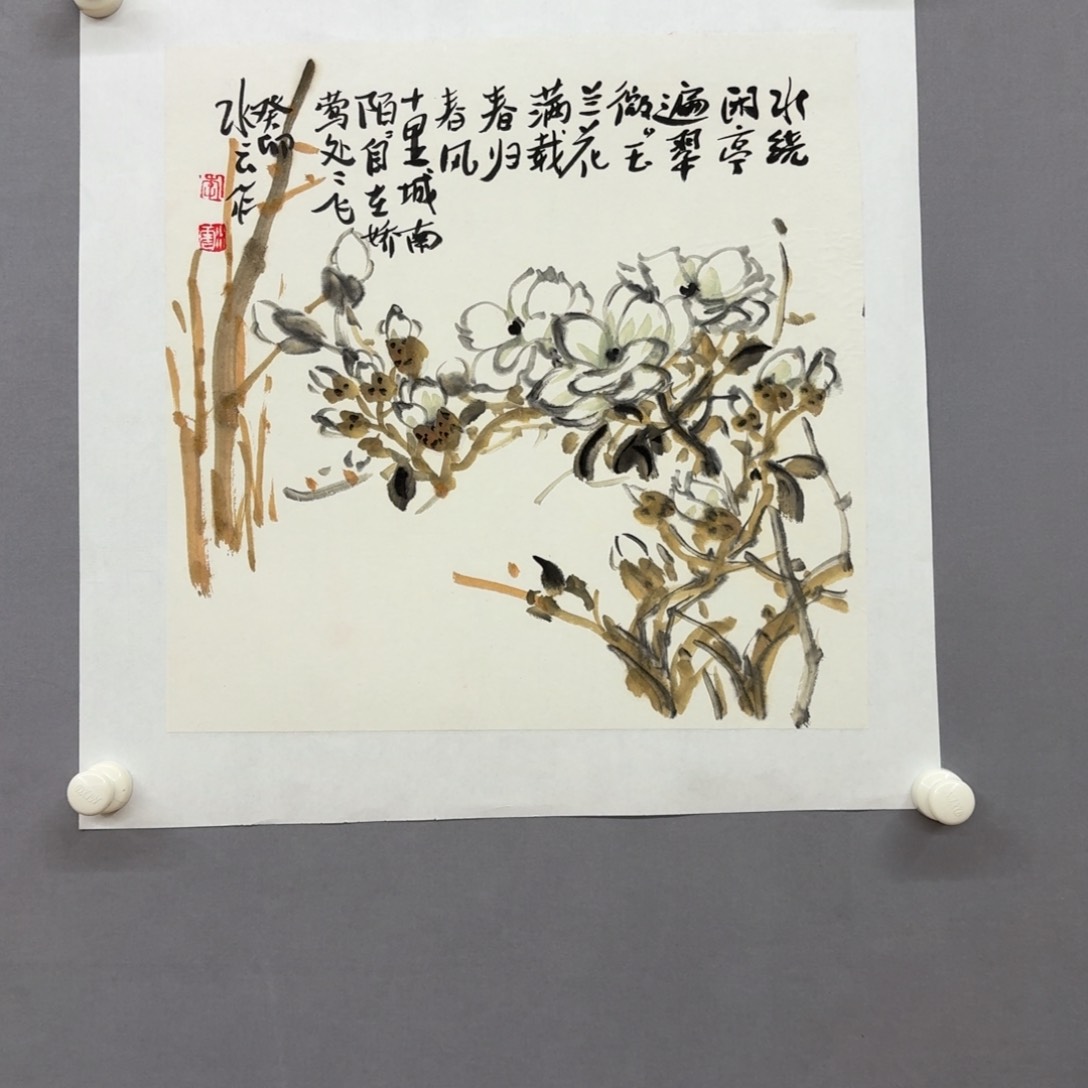 水绕
闲亭
遍翠
微玉
兰花
满载
春归
春风
十里城南
陌自在娇
莺处〻飞
癸卯
水云作